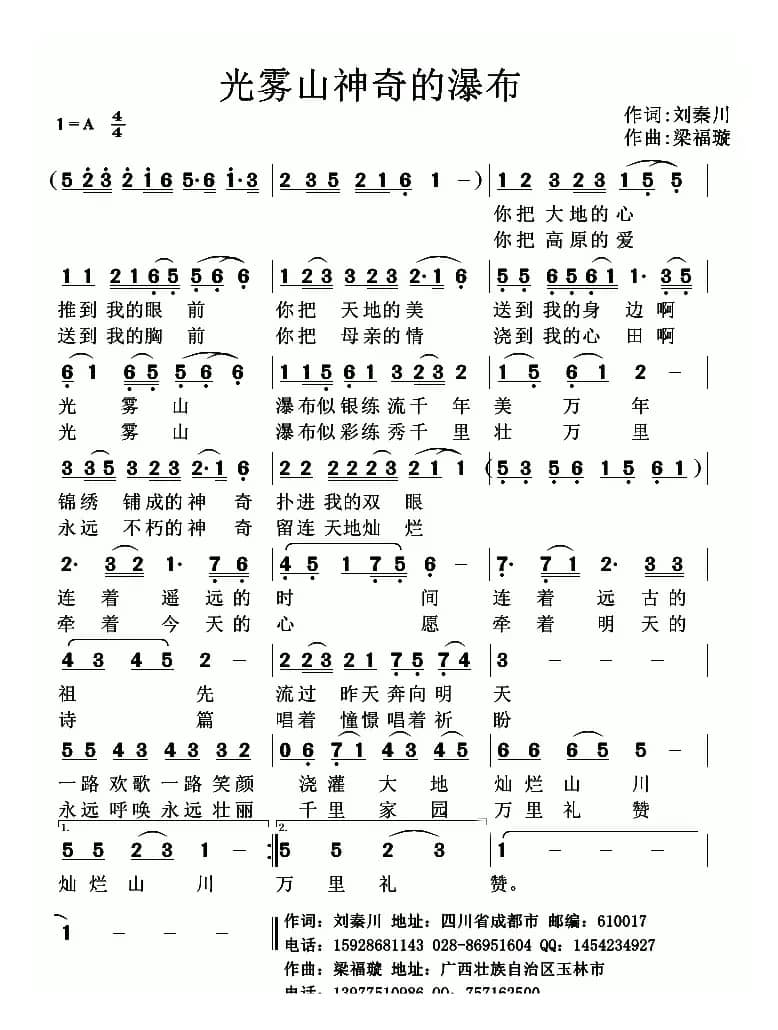 光雾山神奇的瀑布
1=A 4/4
作词:刘秦川
作曲:梁福璇
(5 2 3 2 1 6 5· 6 1· 3 | 2 3 5 2 1 6 1 -) | 1 2 3 2 3 1 5 5 |
你把 大地的 心
你把 高原的 爱
1 1 2 1 6 5 5 6 6 | 1 2 3 3 2 3 2· 1 6 | 5 5 6 5 6 1 1· 3 5 |
推到 我的眼 前 你把 天地的 美 送到 我的身 边啊
送到 我的胸 前 你把 母亲的 情 浇到 我的心 田啊
6 1 6 5 5 6 6 | 1 1 5 6 1 3 2 3 2 | 1 5 6 1 2 - |
光 雾 山 瀑布似 银练 流千 年 美 万 年
光 雾 山 瀑布似 彩练 秀千 里 壮 万 里
3 3 5 3 2 3 2· 1 6 | 2 2 2 2 2 3 2 1 1 | (5 3 5 6 1 5 6 1) |
锦绣 铺成的 神 奇 扑进 我的双 眼
永远 不朽的 神 奇 留连 天地灿 烂
2· 3 2 1· 7 6 | 4 5 1 7 5 6 - | 7· 7 1 2· 3 3 |
连 着 遥 远的 时 间 连 着 远 古的
牵 着 今 天的 心 愿 牵 着 明 天的
4 3 4 5 2 - | 2 2 3 2 2 1 7 5 7 4 | 3 - - - |
祖 先 流过 昨天 奔向 明 天
诗 篇 唱着 憧憬 唱着 祈 盼
5 5 4 3 4 3 3 2 | 0 6 7 1 4 3 4 5 | 6 6 6 5 5 - |
一路 欢歌 一路 笑颜 浇灌 大 地 灿烂 山 川
永远 呼唤 永远 壮丽 千里 家 园 万里 礼 赞
1. 2.
5 5 2 3 1 - :| 5 5 2 3 | 1 - - - |
灿烂 山 川 万 里 礼 赞。
1 - - - |
作词: 刘秦川 地址: 四川省成都市 邮编: 610017
电话: 15928681143 028-86951604 QQ: 1454234927
作曲: 梁福璇 地址: 广西壮族自治区玉林市
电话: 13977510986 QQ: 757162500